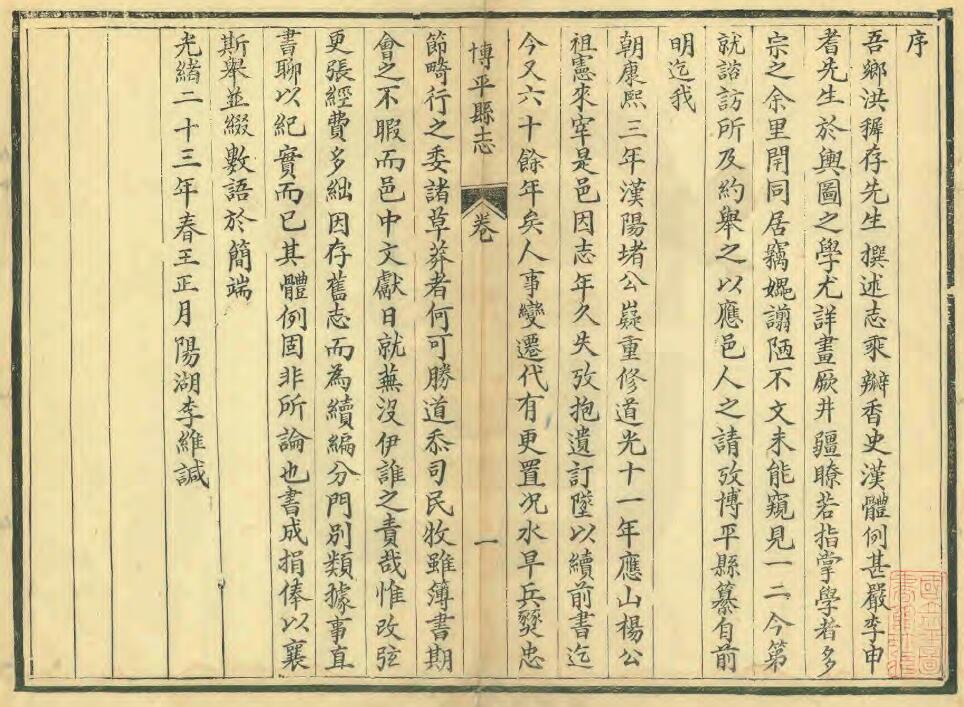 序
吾鄉洪稺存先生撰述志乘瓣香史漢體例甚嚴李申
耆先生於輿圖之學尤詳畫厥井疆瞭若指掌學者多
宗之余里閈同居竊媿謭陋不文未能窺見一二今第
就諮訪所及約舉之以應邑人之請攷博平縣纂自前
明迄我
朝康熙三年漢陽堵公嶷重修道光十一年應山楊公
祖憲來宰是邑因志年久失攷抱遺訂墜以續前書迄
今又六十餘年矣人事變遷代有更置况水旱兵燹忠
博平縣志 卷 一
節畸行之委諸草莽者何可勝道忝司民牧雖簿書期
會之不暇而邑中文獻日就蕪沒伊誰之責哉惟改弦
更張經費多絀因存舊志而為續編分門別類據事直
書聊以紀實而已其體例固非所論也書成捐俸以襄
斯舉並綴數語於簡端
光緒二十三年春王正月陽湖李維諴